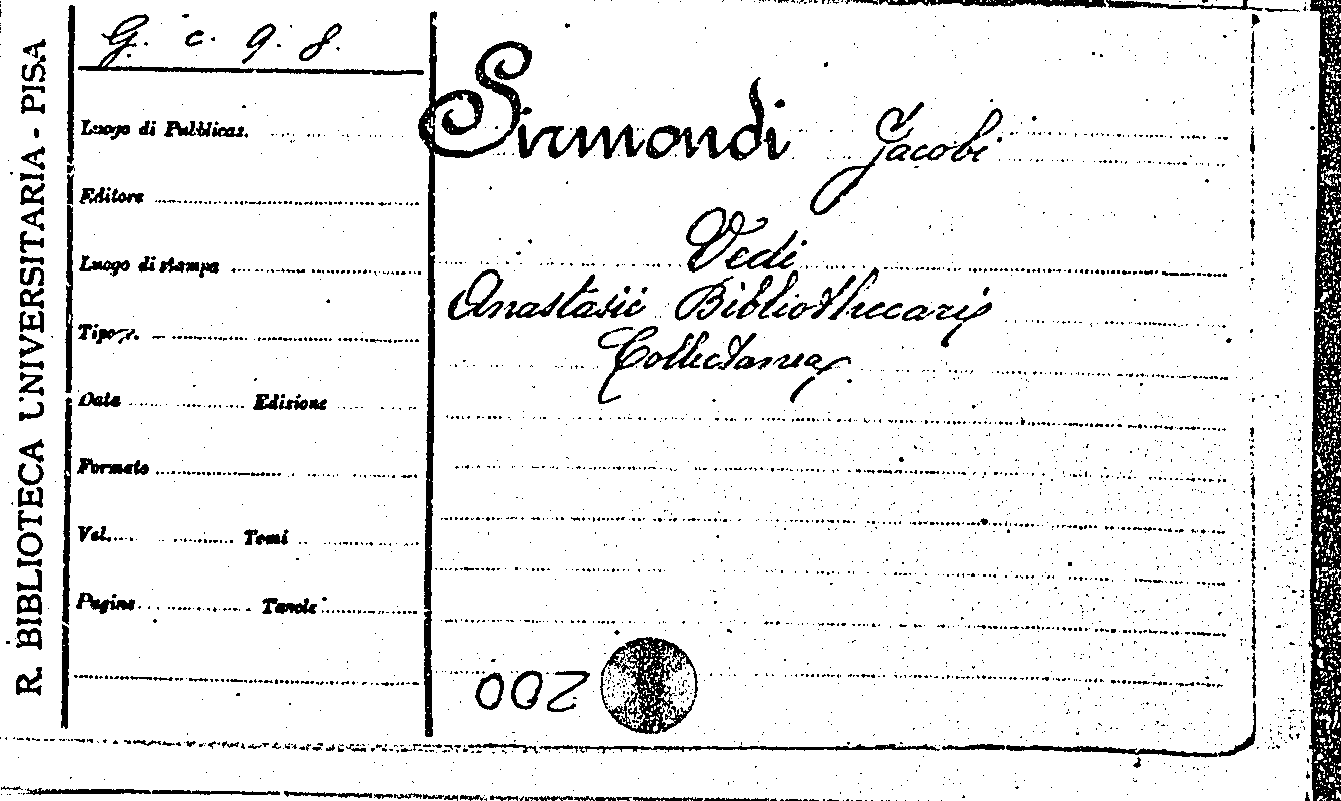 R. BIBLIOTECA UNIVERSITARIA - PISA
G. c. 9. 8.
Luogo di Pubblicaz.
Editore
Luogo di stampa
Tipogr.
Data Edizione
Formato
Vol. Tomi
Pagine Tavole
Sirmondi Jacobi
Vedi
Anastasii Bibliothecarii
Collectanea
200